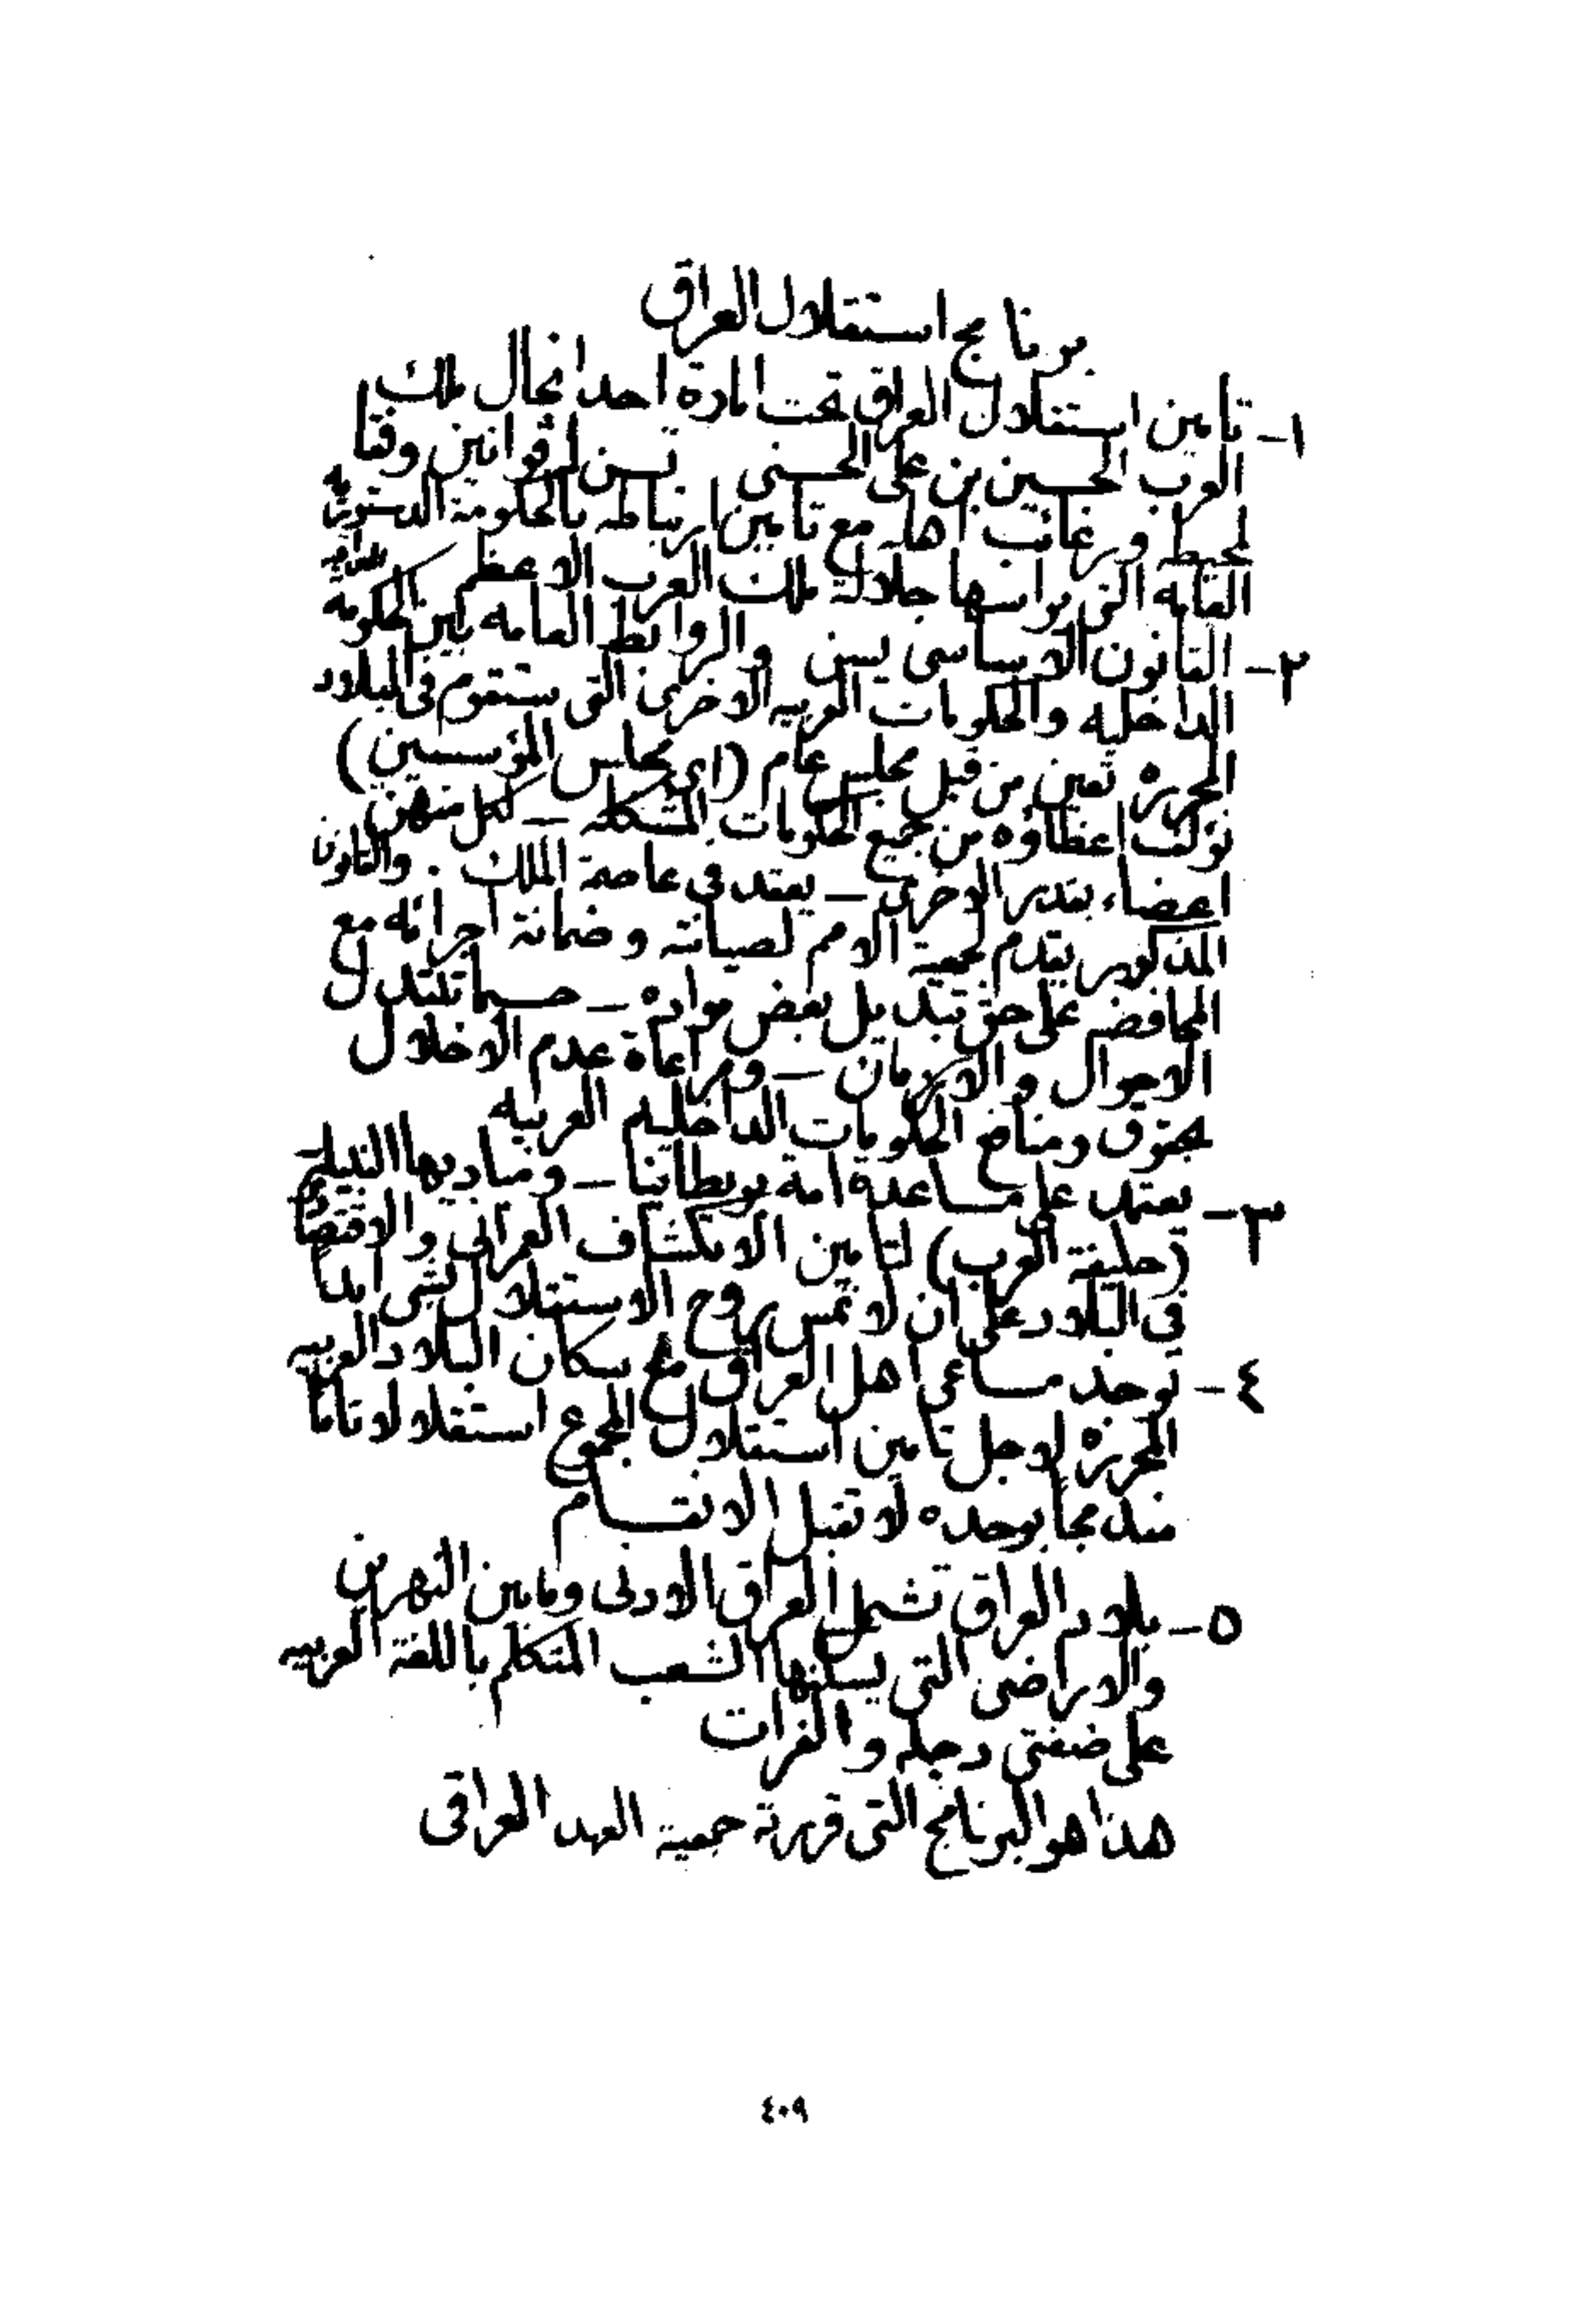 برنامج استقلال العراق
١- تامين استقلال العراق تحت امارة احد انجال ملك
العرب الحسين بن علي الحسني تسن له قوانين وفقا
لمحيطه ورغائب اهله مع تامين ارتباطه بالحكومة الدستوريه
العامه التى يرأسها جلالة ملك العرب الاعظم
٢- القانون الاساسي يسن والروابط العامه بين الحكومه
الداخليه والحكومات العربيه الاخرى التى ستقوم فى البلاد
المحرره تعين من قبل مجلس عام (اى مجلس المؤسسين)
تؤلف اعضاؤه من جميع الحكومات المتشكله — لكل منهن
اعضاء بقدر الاخرى — يعقد فى عاصمة الملك . والقانون
المذكور يقدم لجمعية الامم لصيانته وضمانة اجرائه مع
المحافضه على حق تبديل بعض مواده — حسبما تقتدل
الاحوال والازمان — ومراعاة عدم الاخلال
بحقوق ومنافع الحكومات الداخليه العربيه
٣- يعتمد على مساعدة امة بريطانيا — ومباديها النبيله
(حليفة العرب) لتامين الانكشاف العمرانى والاقتصادى
فى البلاد على ان لا تمس روح الاستقلال بشى ابدا
٤- توحد مساعى اهل العراق مع سكان البلاد العربيه
المحرره لاجل تامين استقلال المجموع استقلالا تاما
مندمجا بوحده لا تقبل الانقسام
٥- بلاد العراق تشمل العراق الادنى ومابين النهرين
والاراضى التى يسكنها الشعب المتكلم باللغة العربيه
على ضفتى دجله والفرات
هذا هو البرنامج التى قررته جمعية العهد العراقى
٤٠٩